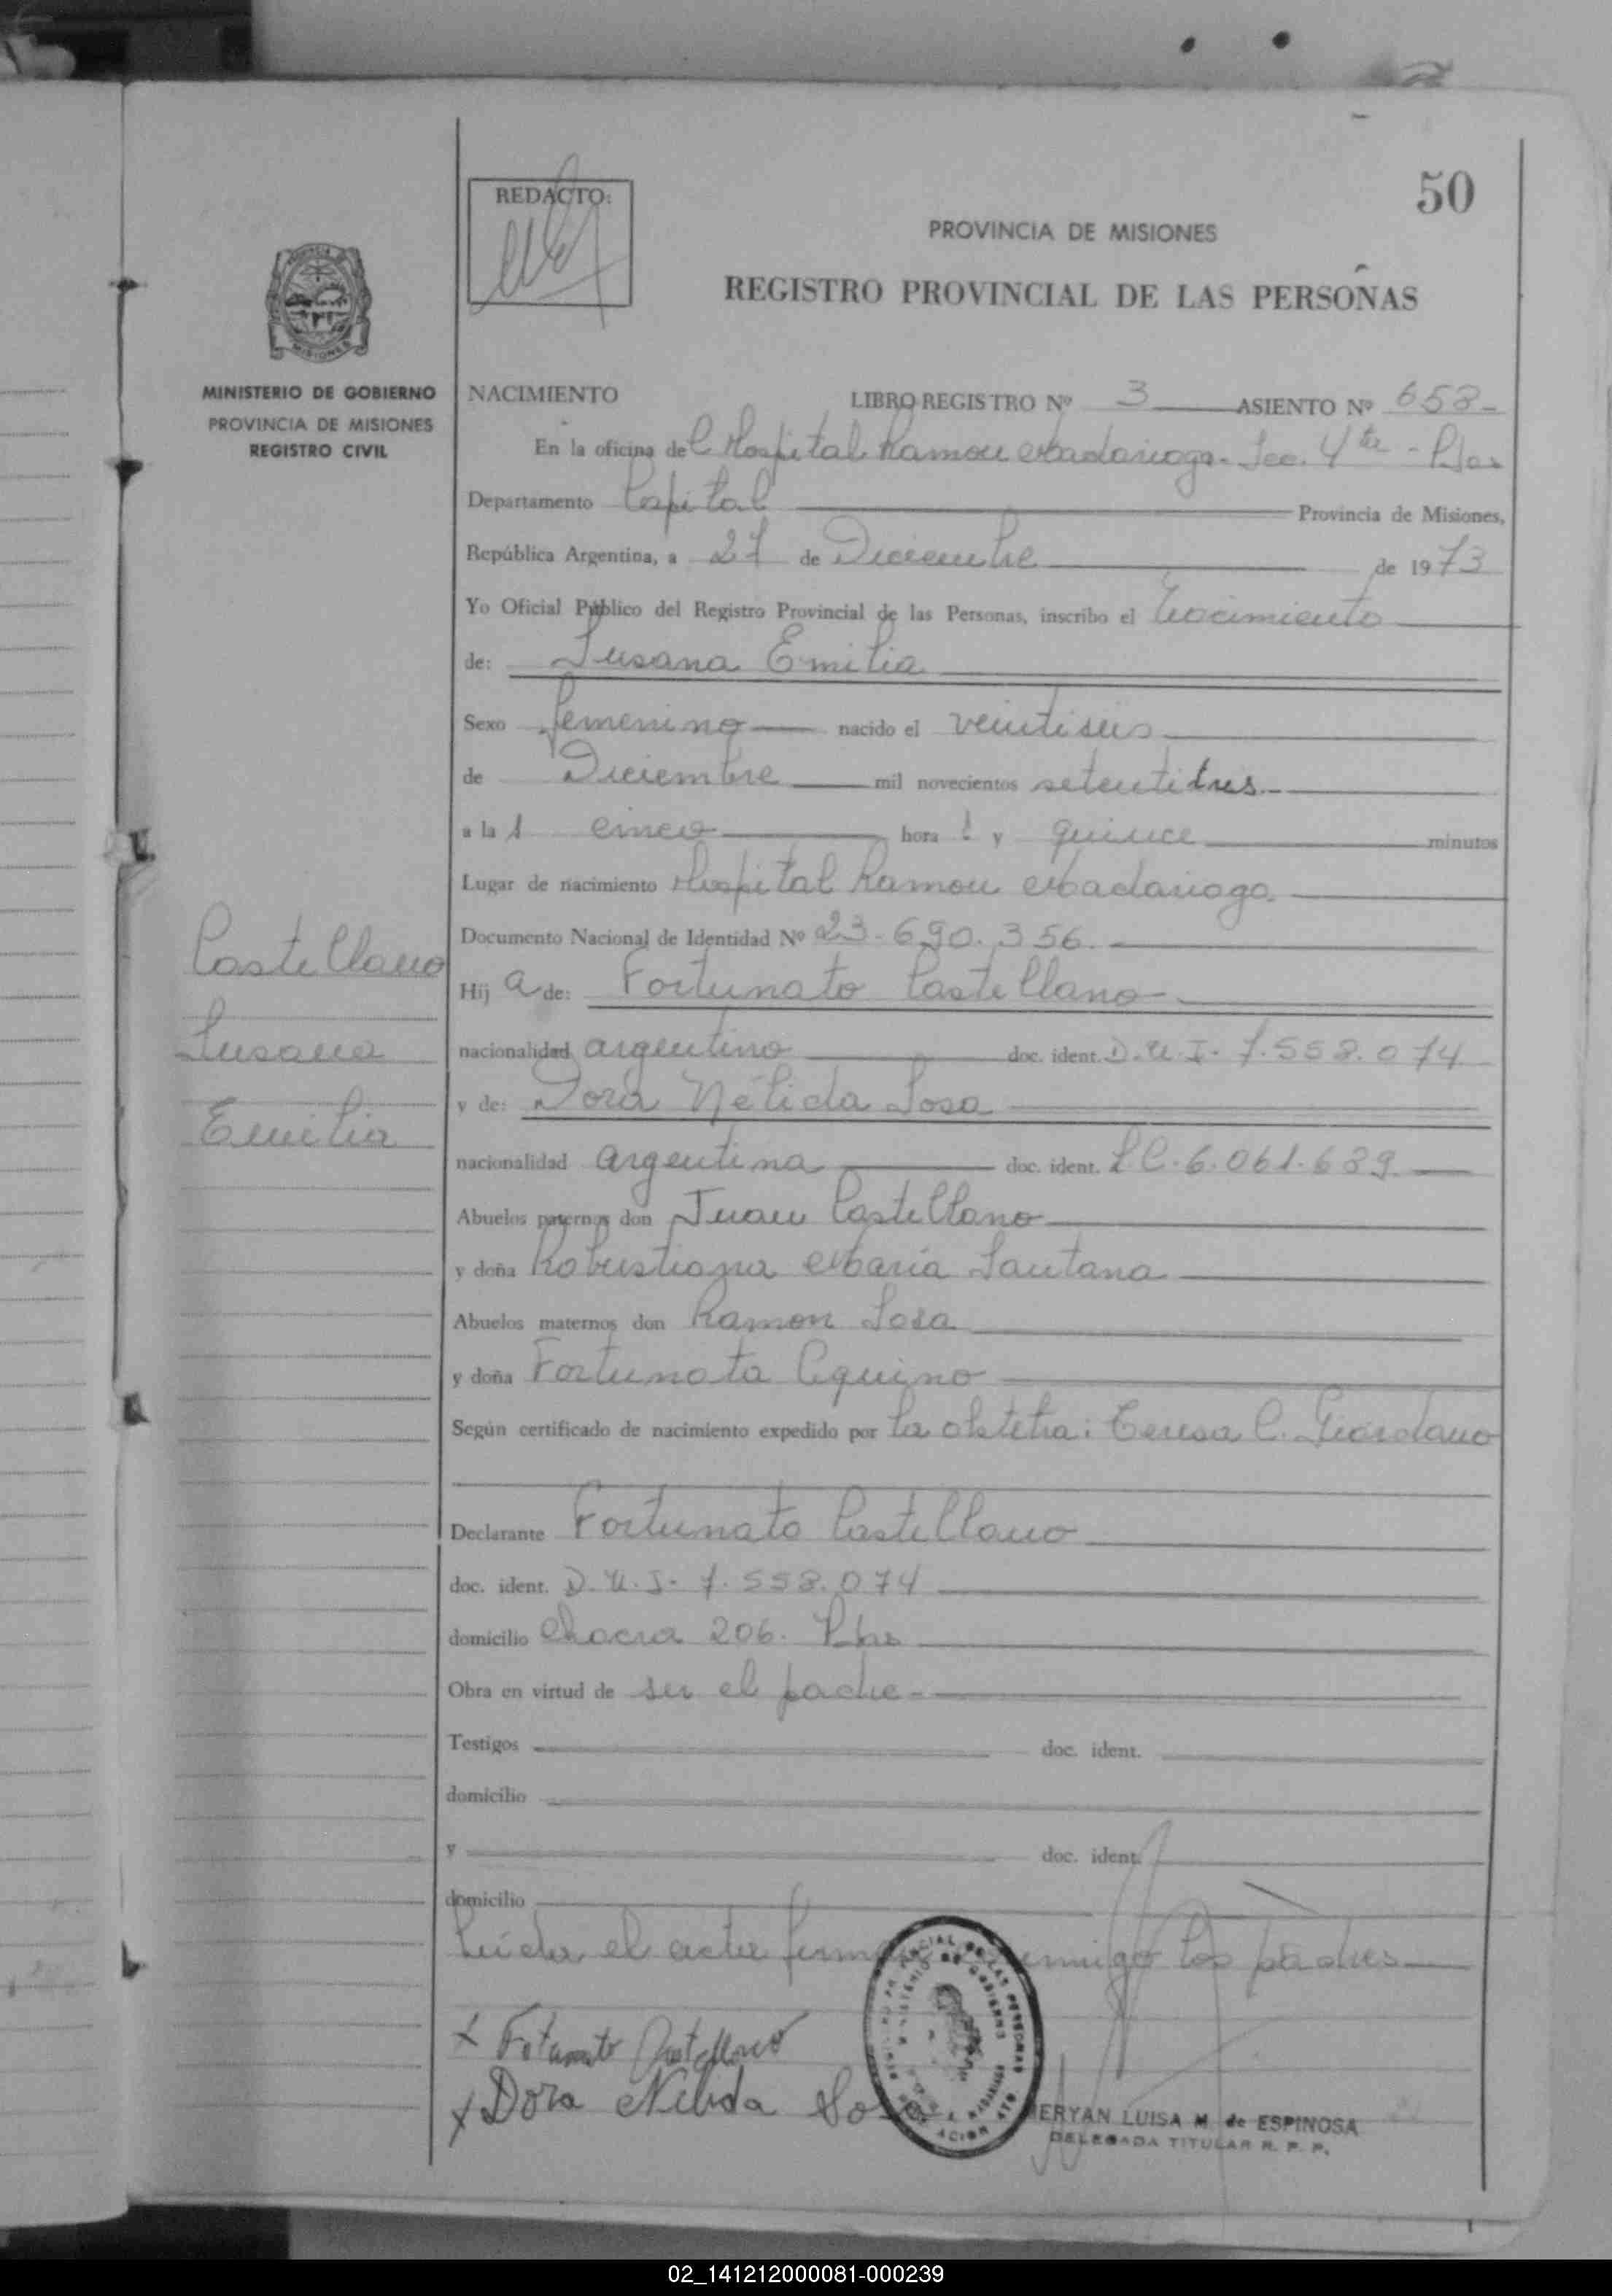 50
REDACTO:
PROVINCIA DE MISIONES
REGISTRO PROVINCIAL DE LAS PERSONAS
MISIONES
MINISTERIO DE GOBIERNO
PROVINCIA DE MISIONES
REGISTRO CIVIL
NACIMIENTO LIBRO REGISTRO Nº 3 ASIENTO Nº 658-
En la oficina del Hospital Ramon Madariaga - Sec. 4ta - Pdas
Departamento Capital Provincia de Misiones,
República Argentina, a 27 de Diciembre de 1973
Yo Oficial Público del Registro Provincial de las Personas, inscribo el Nacimiento
de: Susana Emilia
Sexo femenino nacido el veintiseis
de Diciembre mil novecientos setentitres.-
a la s cinco hora s y quince minutos
Lugar de nacimiento Hospital Ramon Madariaga.
Documento Nacional de Identidad Nº 23-690.356.
Castellano
Susana
Emilia
Hij a de: Fortunato Castellano
nacionalidad argentino doc. ident. D.N.I- 7.558.074
y de: Dora Nélida Sosa
nacionalidad argentina doc. ident. LC.6.061.689.
Abuelos paternos don Juan Castellano
y doña Robustiana María Santana
Abuelos maternos don Ramon Sosa
y doña Fortunata Aquino
Según certificado de nacimiento expedido por la obstetra: Teresa C. Giordano
Declarante Fortunato Castellano
doc. ident. D.N.I- 7.558.074
domicilio Chacra 206. Pdas
Obra en virtud de ser el padre-
Testigos doc. ident.
domicilio
y doc. ident.
domicilio
Leída el acta conmigo los padres
x Fortunato Castellano
x Dora Nelida
ERYAN LUISA M. de ESPINOSA
DELEGADA TITULAR R. P. P.
02_141212000081-000239